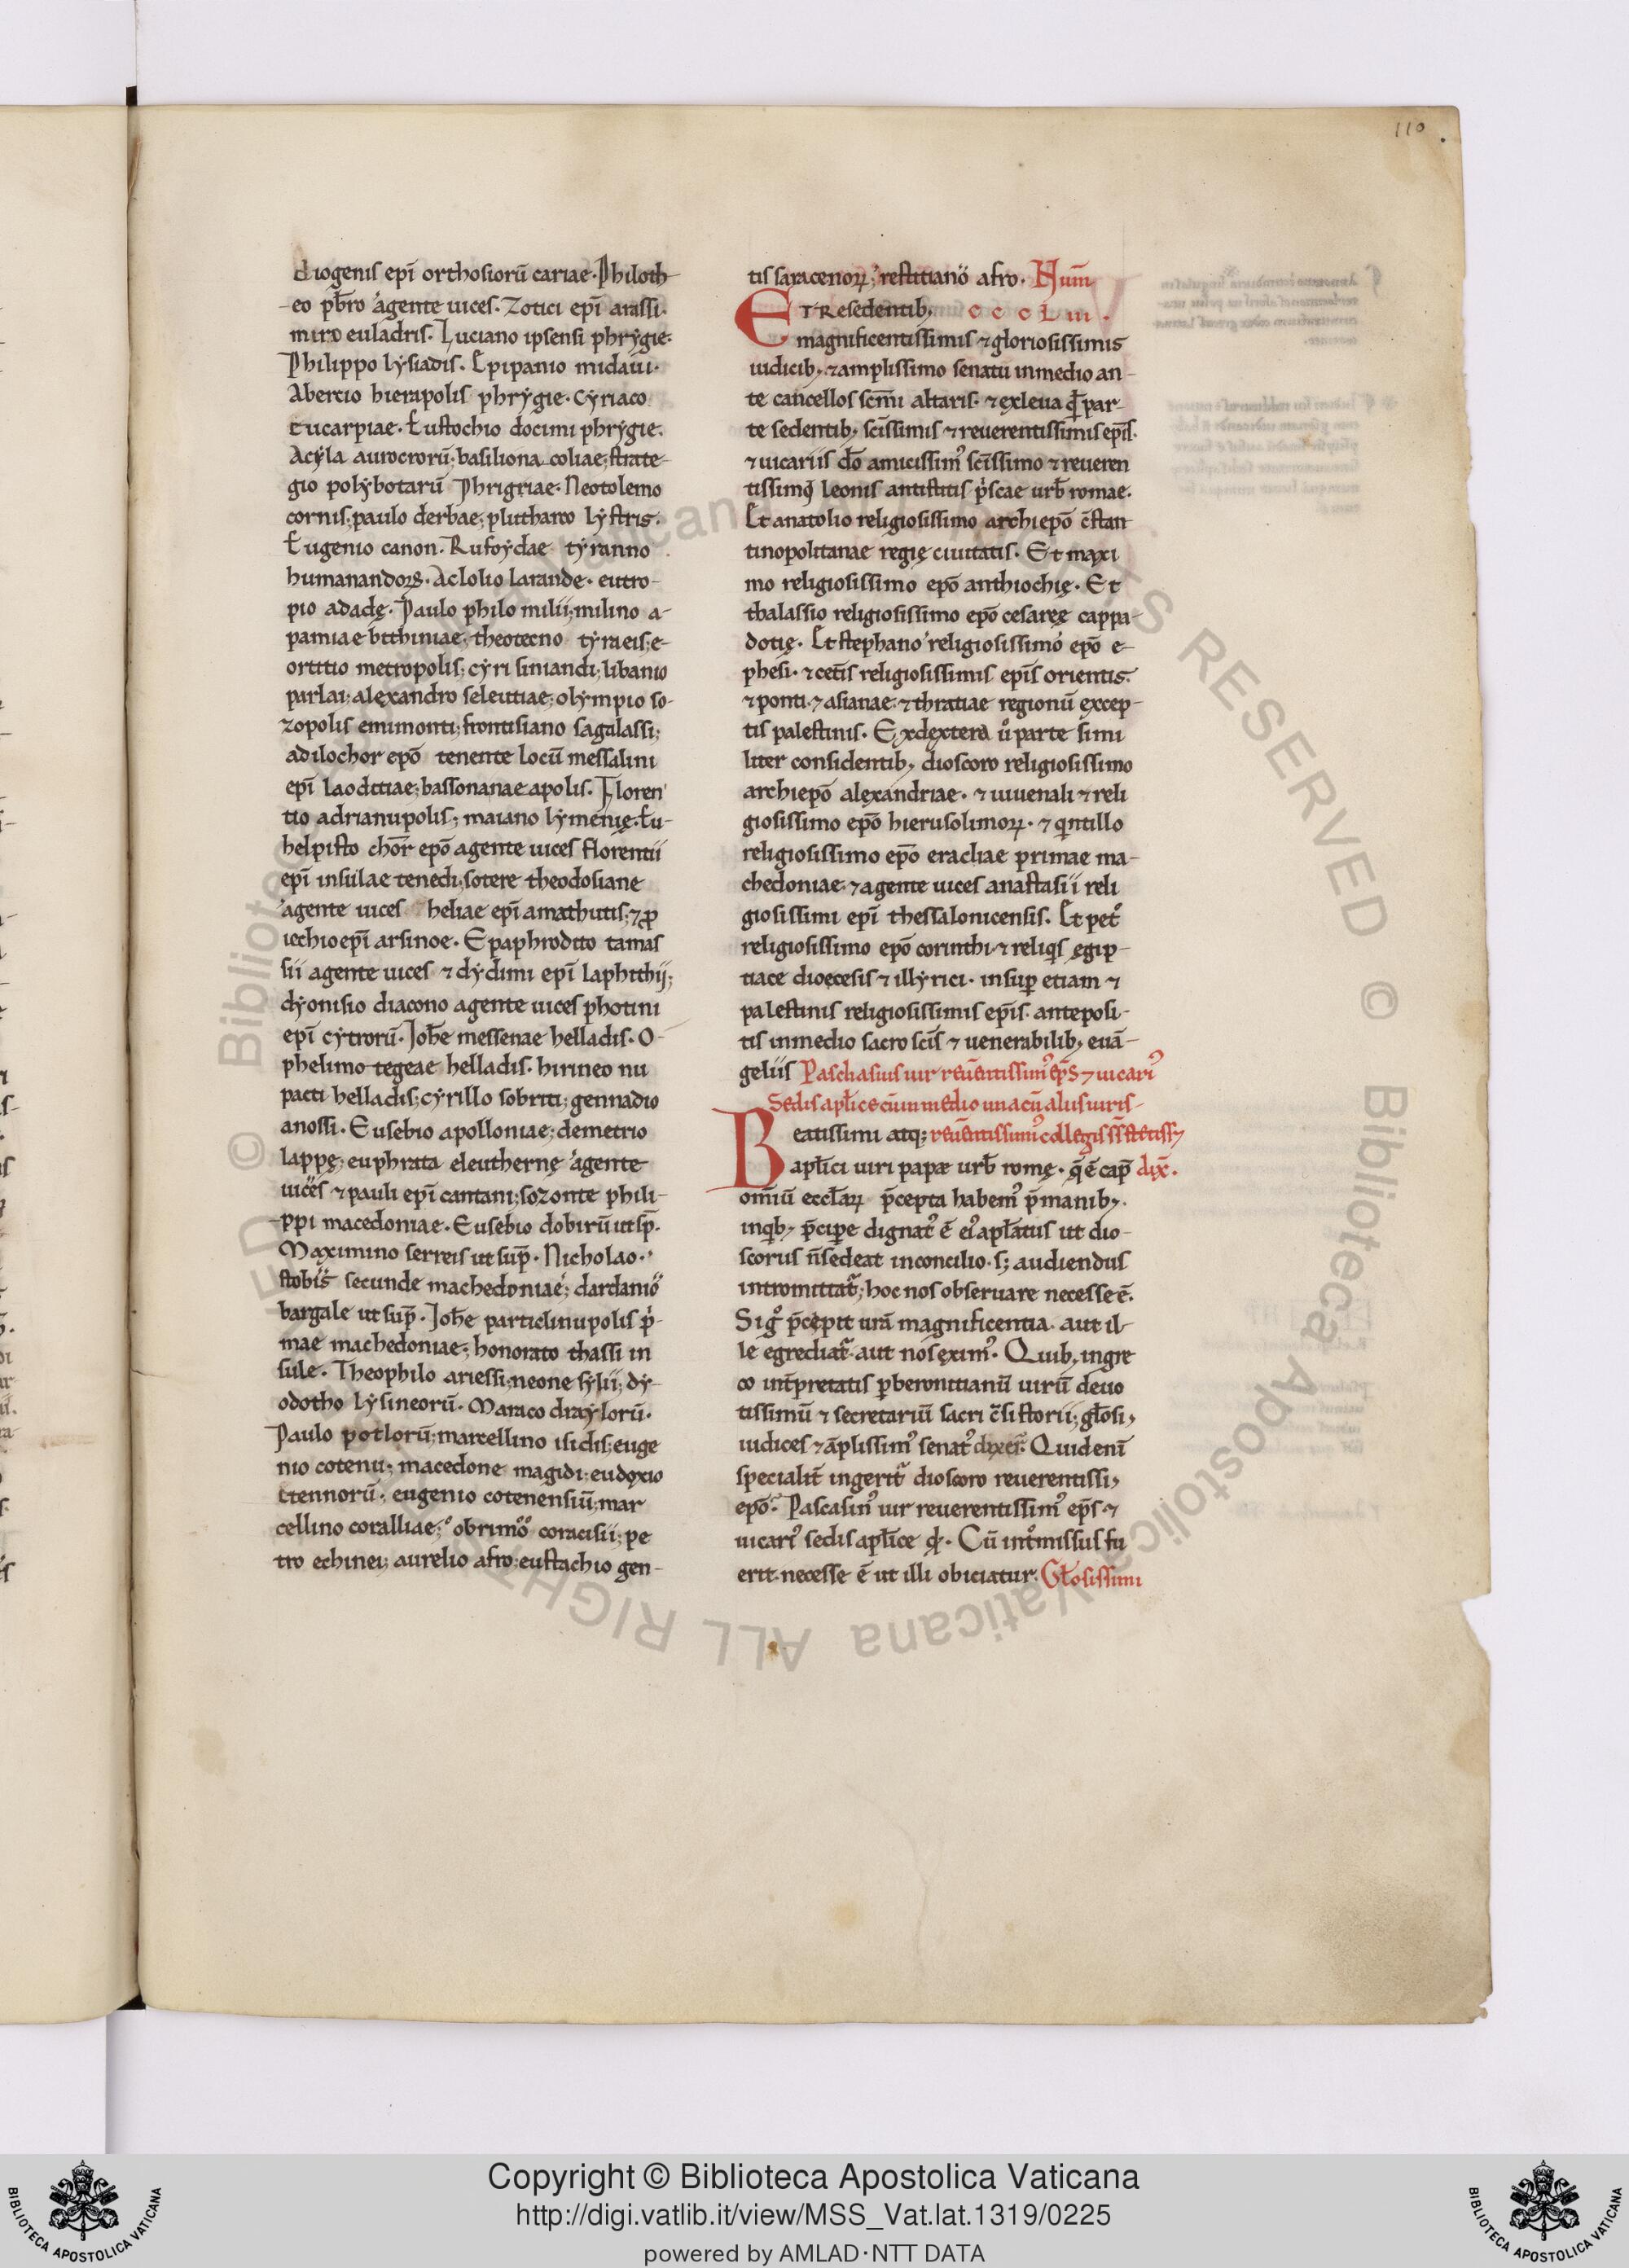 110
diogenis epī orthosiorū cariae. Philoth
eo pb̄ro agente uices. Zotici epī arassi.
miro euladris. Luciano ipsensi phrygie.
Philippo lysiadis. Epipanio midaiii.
Abercio hierapolis phrygie. Cyriaco
eucarpiae. Eustochio docimi phrygie.
Acyla aurocrorū; basiliona coliae; strate-
gio polybotarū Phrigriae. Neotolemo
cornis; paulo derbae; plutharco lystris.
Eugenio canon. Rufoydae tyranno
humanandorꝝ. Aclolio larande. eutro-
pio adadę. Paulo philo milii; milino a-
pamiae bithiniae; theotecno tyraeis; e-
ortitio metropolis; cyri siniandi; libanio
parlai; alexandro seleutiae; olympio so-
zopolis emimonti; frontisiano sagalassi;
adilochor epō tenente locū messalini
epī laoditiae; bassonanae apolis. Floren
tio adrianupolis; maiano lymenię. Eu-
helpisto chor̄ epō agente uices florentii
epī insulae tenedi; sotere theodosiane
agente uices heliae epī amathutis; ⁊ ꝓ
iechio epī arsinoe. Epaphrodito tamas
sii agente uices ⁊ dydimi epī laphithij;
dyonisio diacono agente uices photini
epī cytrorū. Joh̄e messenae helladis. O-
phelimo tegeae helladis. hirineo nu
pacti helladis; cyrillo sobriti; gennadio
anossi. Eusebio apolloniae; demetrio
lappę; euphrata eleuthernę agente
uices ⁊ pauli epī cantani; sozonte phili-
ppi macedoniae. Eusebio dobirū ut sp̄.
Maximino serreis ut sup̄. Nicholao.
stobis secunde machedoniae; dardanio
bargale ut sup̄. Joh̄e particlinupolis p̍-
mae machedoniae; honorato thassi in
sule. Theophilo ariessi; neone sylii; dy-
odotho lysineorū. Maraco draylorū.
Paulo potlorū; marcellino isidis; euge
nio cotenu; macedone magidi; eudoxio
etennorū. eugenio cotenensiū; mar
cellino coralliae; obrimo coracisii; pe
tro echinei; aurelio afro; eustachio gen-
tis saracenoꝝ; restitiano afro. Num̄
ET Residentib; ccc Liii.
magnificentissimis ⁊ gloriosissimis
iudicib; ⁊ amplissimo senatu in medio an-
te cancellos sc̄mi altaris. ⁊ ex leua q̄ par-
te sedentib; sc̄issimis ⁊ reuerentissimis ep̄is.
⁊ uicariis do̅ amicissimꝰ sc̄issimo ⁊ reueren
tissimꝗ leonis antistitis p̍scae urb̄ romae.
Et anatolio religiosissimo archiepō c̄stan
tinopolitanae regię ciuitatis. Et maxi
mo religiosissimo epō anthiochię. Et
thalassio religiosissimo epō cesareę cappa-
dotię. Et stephano religiosissimo epō e-
phesi. ⁊ cet̄is religiosissimis ep̄is orientis.
⁊ ponti. ⁊ asianae. ⁊ thratiae regionū excep-
tis palestinis. Ex dextera u̍o parte simi
liter considentib; dioscoro religiosissimo
archiepō alexandriae. ⁊ iuuenali ⁊ reli
giosissimo epō hierusolimoꝝ. ⁊ qͥntillo
religiosissimo epō eracliae primae ma-
chedoniae. ⁊ agente uices anastasii reli
giosissimi epī thessalonicensis. Et petͦ
religiosissimo epō corinthi. ⁊ reliqͥs egip-
tiace dioecesis ⁊ illyrici. insuꝑ etiam ⁊
palestinis religiosissimis ep̄is. anteposi-
tis in medio sacro sc̄is ⁊ uenerabilib; euā-
geliis Paschasius uir reūentissimꝰ ep̄s ⁊ uicariꝰ
Sedis apl̄ice cū in medio una cū aliis uiris
Beatissimi atq; reūentissimꝰ collegis
apl̄ici uiri papæ urb̄ romę. q̄ ē cap̄ dix̄.
om̄iū eccl̄aꝝ p̄cepta habemꝰ p̄ manib;
inqͥb; p̄cipe dignatꝰ ē eiꝰ apl̄atus ut dio-
scorus n̄ sedeat in concilio. s; audiendus
intromittat᷑; hoc nos obseruare necesse ē.
Sigͦ p̄cepit ur̄a magnificentia. aut il-
le egrediat᷑. aut nos eximꝰ. Quib; ingre
co int̄pretatis ꝑ beronitianū uirū deuo
tissimū ⁊ secretariū sacri c̄sistorii; gl̄osi;
iudices ⁊ āplissimꝰ senatꝰ dixer̄. Quid enī
specialit̄ ingerit᷑ dioscoro reuerentissi;
epō. Pascasinꝰ uir reuerentissimꝰ ep̄s ⁊
uicariꝰ sedis apl̄ice ꝗ. Cū int̍missus fu
erit. necesse ē ut illi obiciatur. Gl̄osissimi
Copyright © Biblioteca Apostolica Vaticana
http://digi.vatlib.it/view/MSS_Vat.lat.1319/0225
powered by AMLAD·NTT DATA
BIBLIOTECA APOSTOLICA VATICANA
BIBLIOTECA APOSTOLICA VATICANA
© Biblioteca Apostolica Vaticana ALL RIGHTS RESERVED © Biblioteca Apostolica Vaticana ALL RIGHTS RESERVED